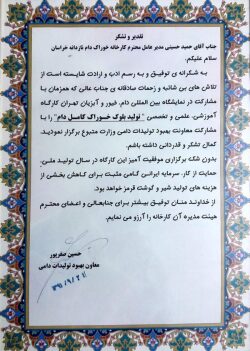 تقدیر و تشکر
جناب آقای حمید حسینی مدیر عامل محترم کارخانه خوراک دام نازدانه خراسان
سلام علیکم:
به شکرانه ی توفیق و به رسم ادب و ارادت شایسته است از
تلاش های بی شائبه و زحمات صادقانه ی جناب عالی که همزمان با
مشارکت در نمایشگاه بین المللی دام، طیور و آبزیان تهران کارگاه
آموزشی، علمی و تخصصی " تولید بلوک خوراک کامل دام " را با
مشارکت معاونت بهبود تولیدات دامی وزارت متبوع برگزار نمودید،
کمال تشکر و قدردانی داشته باشم.
بدون شک برگزاری موفقیت آمیز این کارگاه در سال تولید ملی،
حمایت از کار، سرمایه ایرانی گامی مثبت برای کاهش بخشی از
هزینه های تولید شیر و گوشت قرمز خواهد بود.
از خداوند منان توفیق بیشتر برای جنابعالی و اعضای محترم
هیئت مدیره آن کارخانه را آرزو می نمایم.
حسین صفرپور
معاون بهبود تولیدات دامی